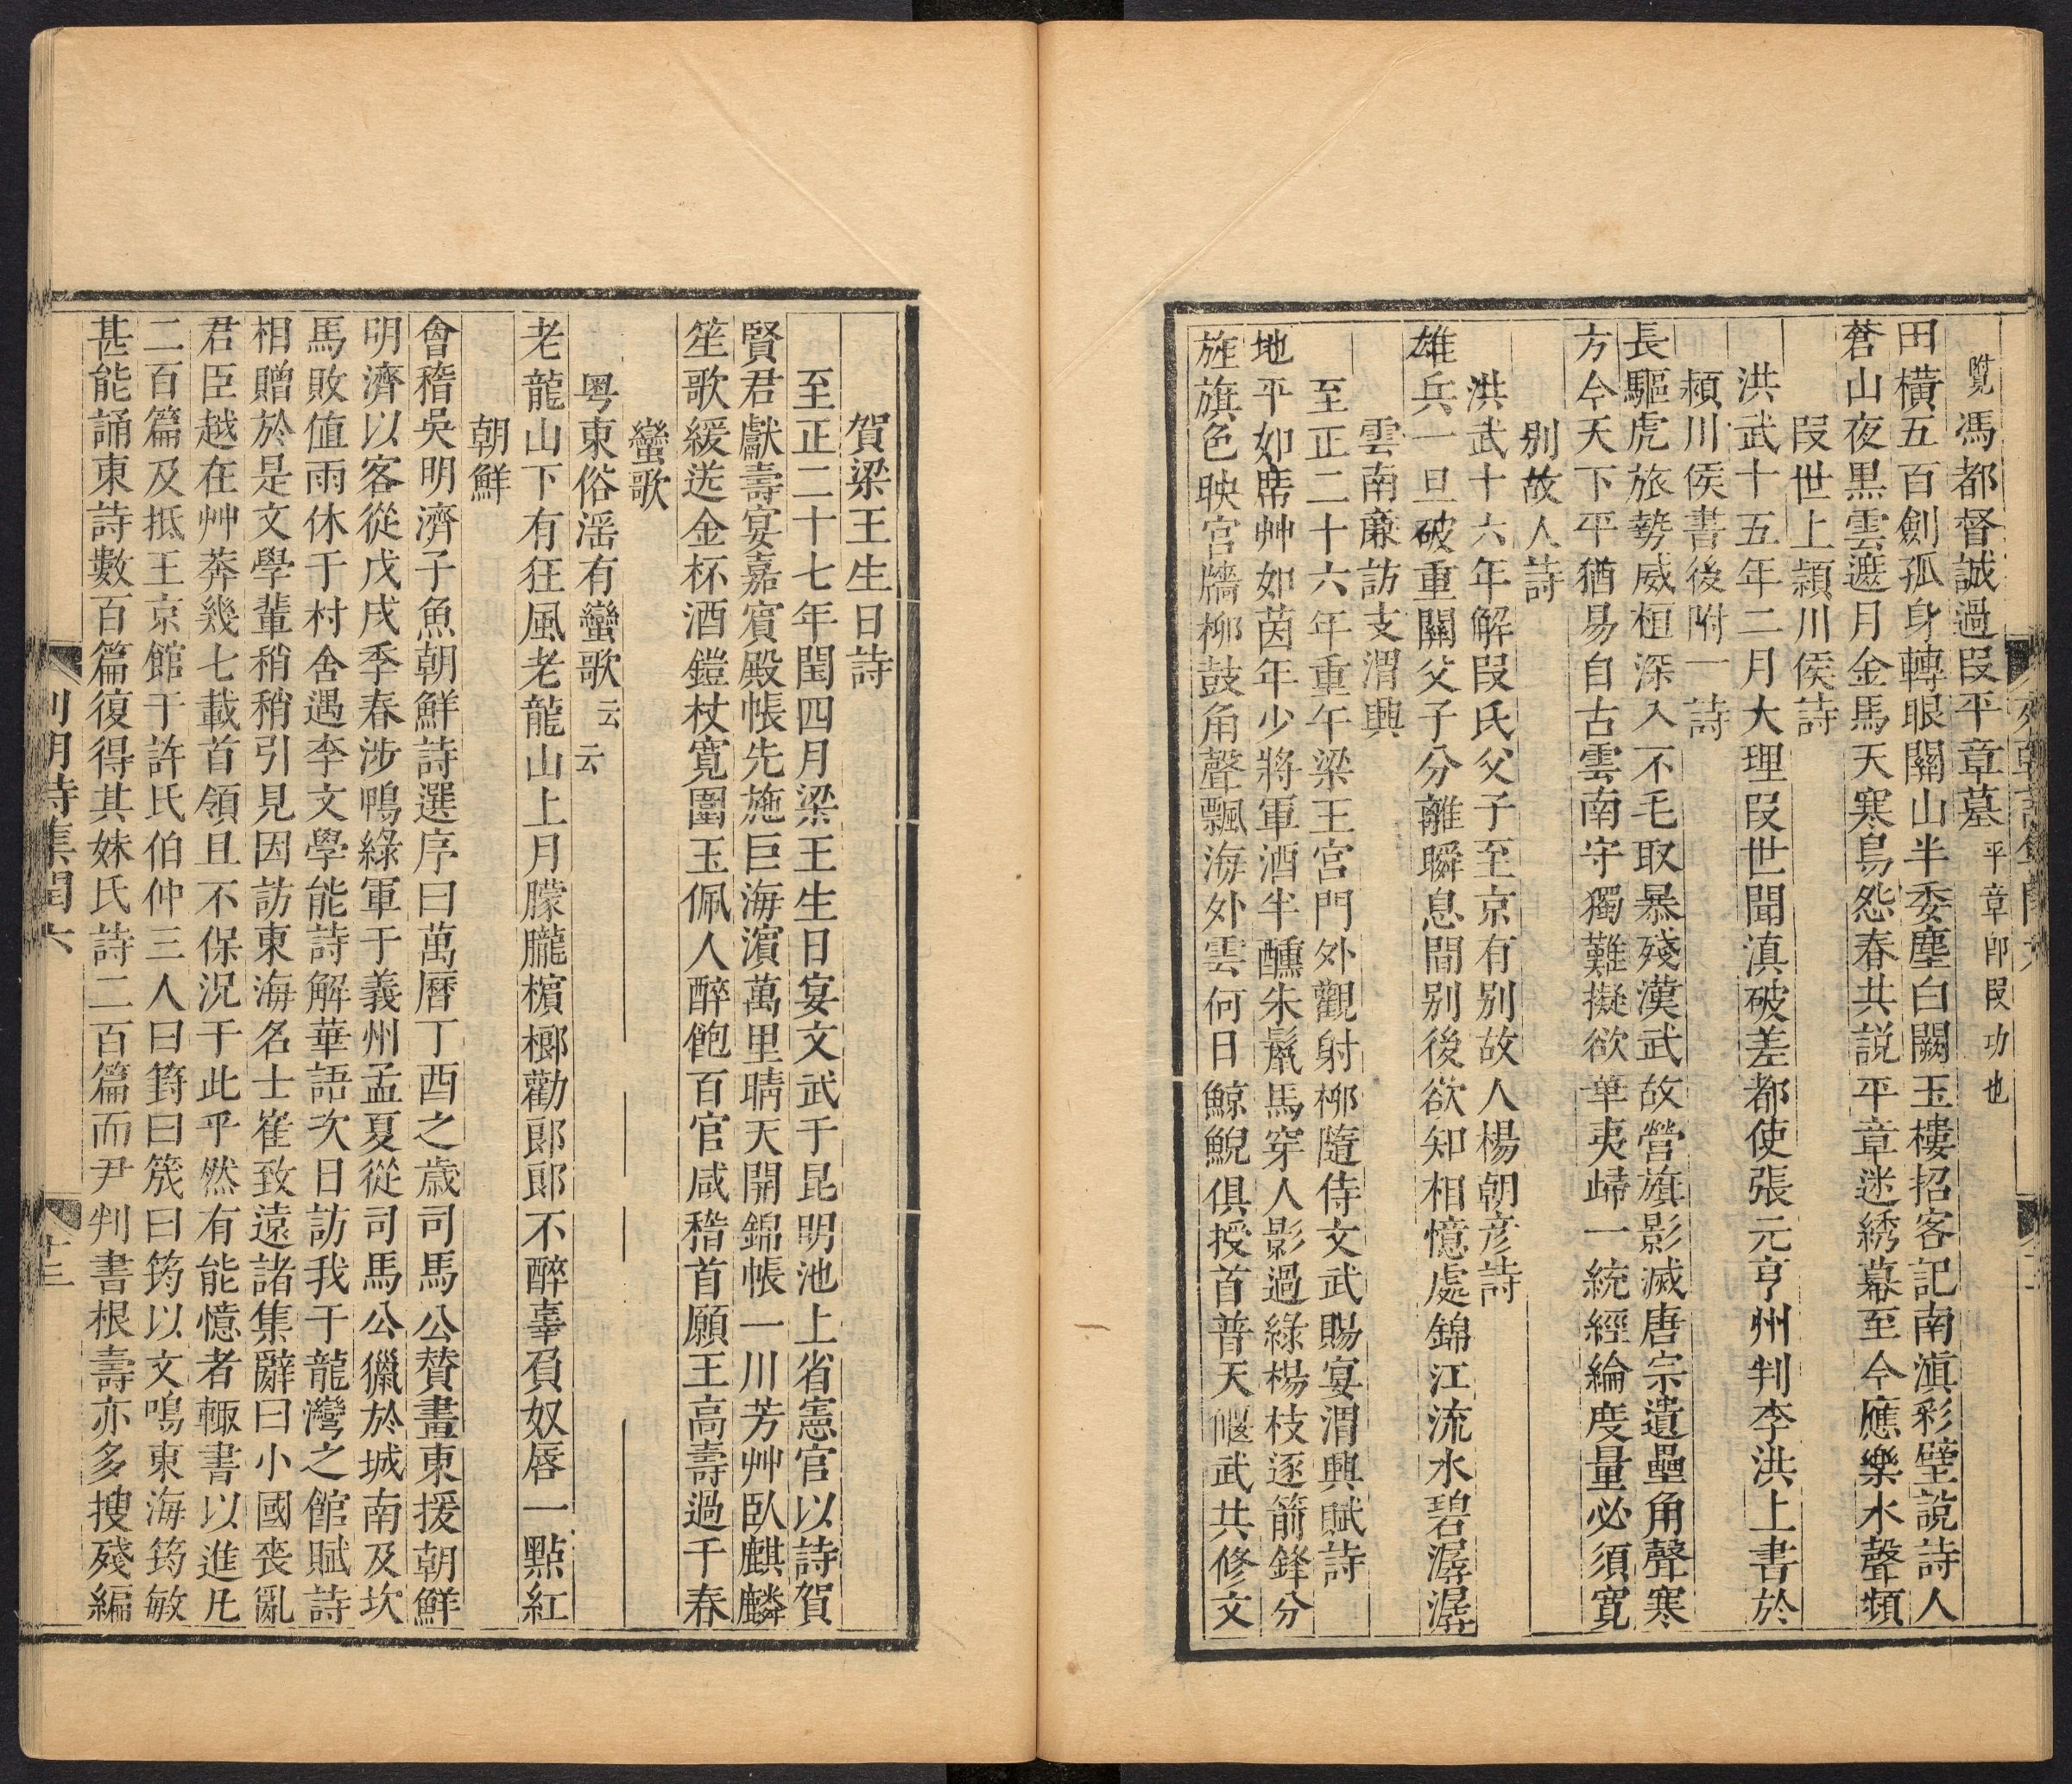 覽馮都督誠過段平章墓平章郎段功也
田橫五百劍孤身轉眼關山半委塵白闕玉樓招客記南滇彩壁說詩人
蒼山夜黒雲遮月金馬天寒鳥怨春共説平章迷綉幕至今應樂水聲頻
段世上潁川侯詩
洪武十五年二月大理段世聞滇破差都使張元亨州判李洪上書於
潁川侯書後附一詩
長驅虎旅勢威桓深入不毛取暴殘漢武故營旗影滅唐宗遺壘角聲寒
方今天下平猶易自古雲南守獨難擬欲華夷歸一統經綸度量必須寬
別故人詩
洪武十六年解段氏父子至京有別故人楊朝彦詩
雄兵一旦破重關父子分離瞬息間別後欲知相憶處錦江流水碧潺潺
雲南廉訪支渭興
至正二十六年重午梁王宮門外觀射柳隨侍文武賜宴渭興賦詩
地平如席艸如茵年少將軍酒半醺朱鬣馬穿人影過綠楊枝逐箭鋒分
旌旗色映宮牆柳鼓角聲飄海外雲何日鯨鯢俱授首普天偃武共修文
賀梁王生日詩
至正二十七年閏四月梁王生日宴文武于昆明池上省憲官以詩賀
賢君獻壽宴嘉賓殿帳先施巨海濵萬里晴天開錦帳一川芳艸臥麒麟
笙歌緩送金杯酒鎧杖寬圍玉佩人醉飽百官咸稽首願王高壽過千春
蠻歌
粤東俗滛有蠻歌云云
老龍山下有狂風老龍山上月朦朧檳榔勸郎郎不醉辜負奴唇一點紅
朝鮮
會稽吳明濟子魚朝鮮詩選序曰萬曆丁酉之歲司馬公贊畫東援朝鮮
明濟以客從戊戌季春涉鴨綠軍于義州孟夏從司馬公獵於城南及坎
馬敗値雨休于村舍遇李文學能詩解華語次日訪我于龍灣之館賦詩
相贈於是文學輩稍稍引見因訪東海名士崔致遠諸集辭曰小國喪亂
君臣越在艸莽幾七載首領且不保況于此乎然有能憶者輒書以進凡
二百篇及抵王京館于許氏伯仲三人曰篈曰筬曰筠以文鳴東海筠敏
甚能誦東詩數百篇復得其妹氏詩二百篇而尹判書根壽亦多搜殘編
列朝詩集閏六
十三